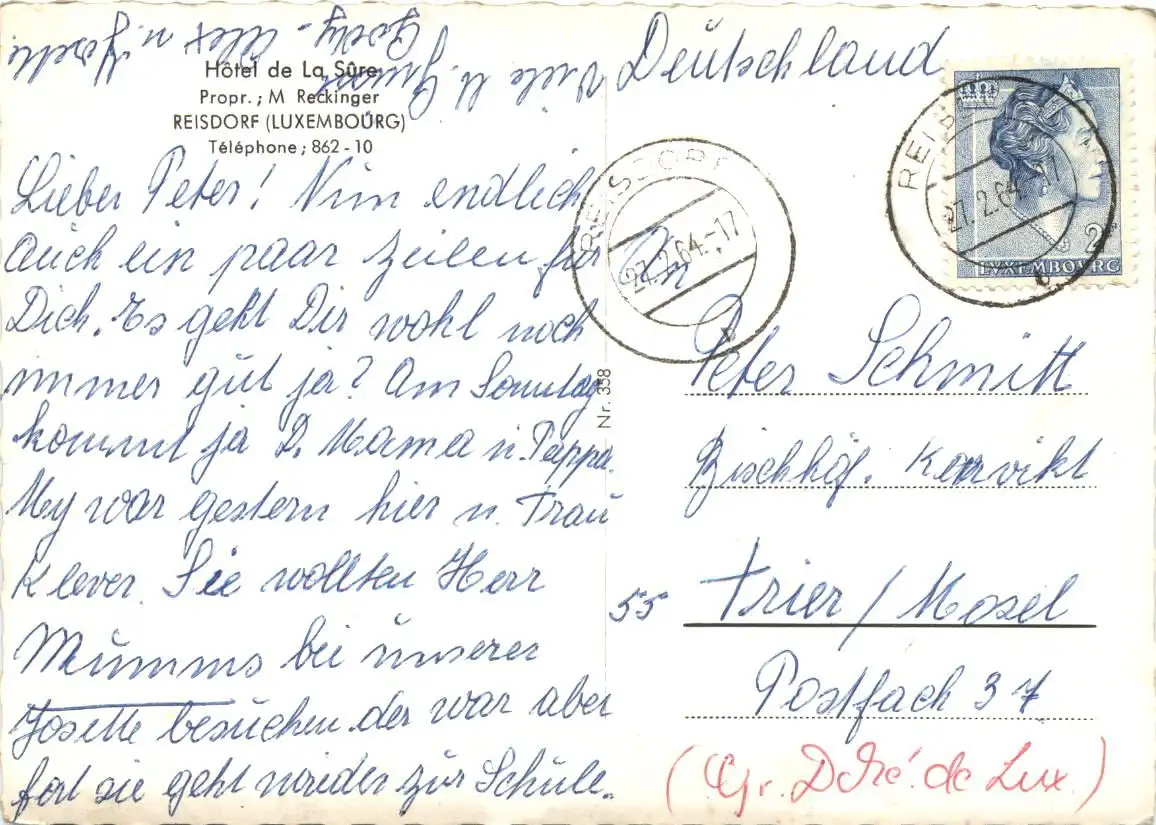 Hôtel de La Sûre
Propr.; M Reckinger
REISDORF (LUXEMBOURG)
Téléphone; 862-10
Lieber Peter! Nun endlich
auch ein paar Zeilen für
Dich. Es geht Dir wohl noch
immer gut ja? Am Sonntag
kommt ja D. Mama u. Pappa.
My war gestern hier u. Frau
Klever. Sie wollten Herr
Mumms bei unserer
Josette besuchen der war aber
fort sie geht wieder zur Schule.
Viele u.
Gody - Alex u. Josette
Deutschland
REISDORF
27.2.64.-17
REISDORF
27.2.64.-17
2F
LUXEMBOURG
Nr. 358
An
Peter Schmitt
Bischhöf. Konvikt
55 Trier / Mosel
Postfach 37
(Gr. Dché. de Lux.)